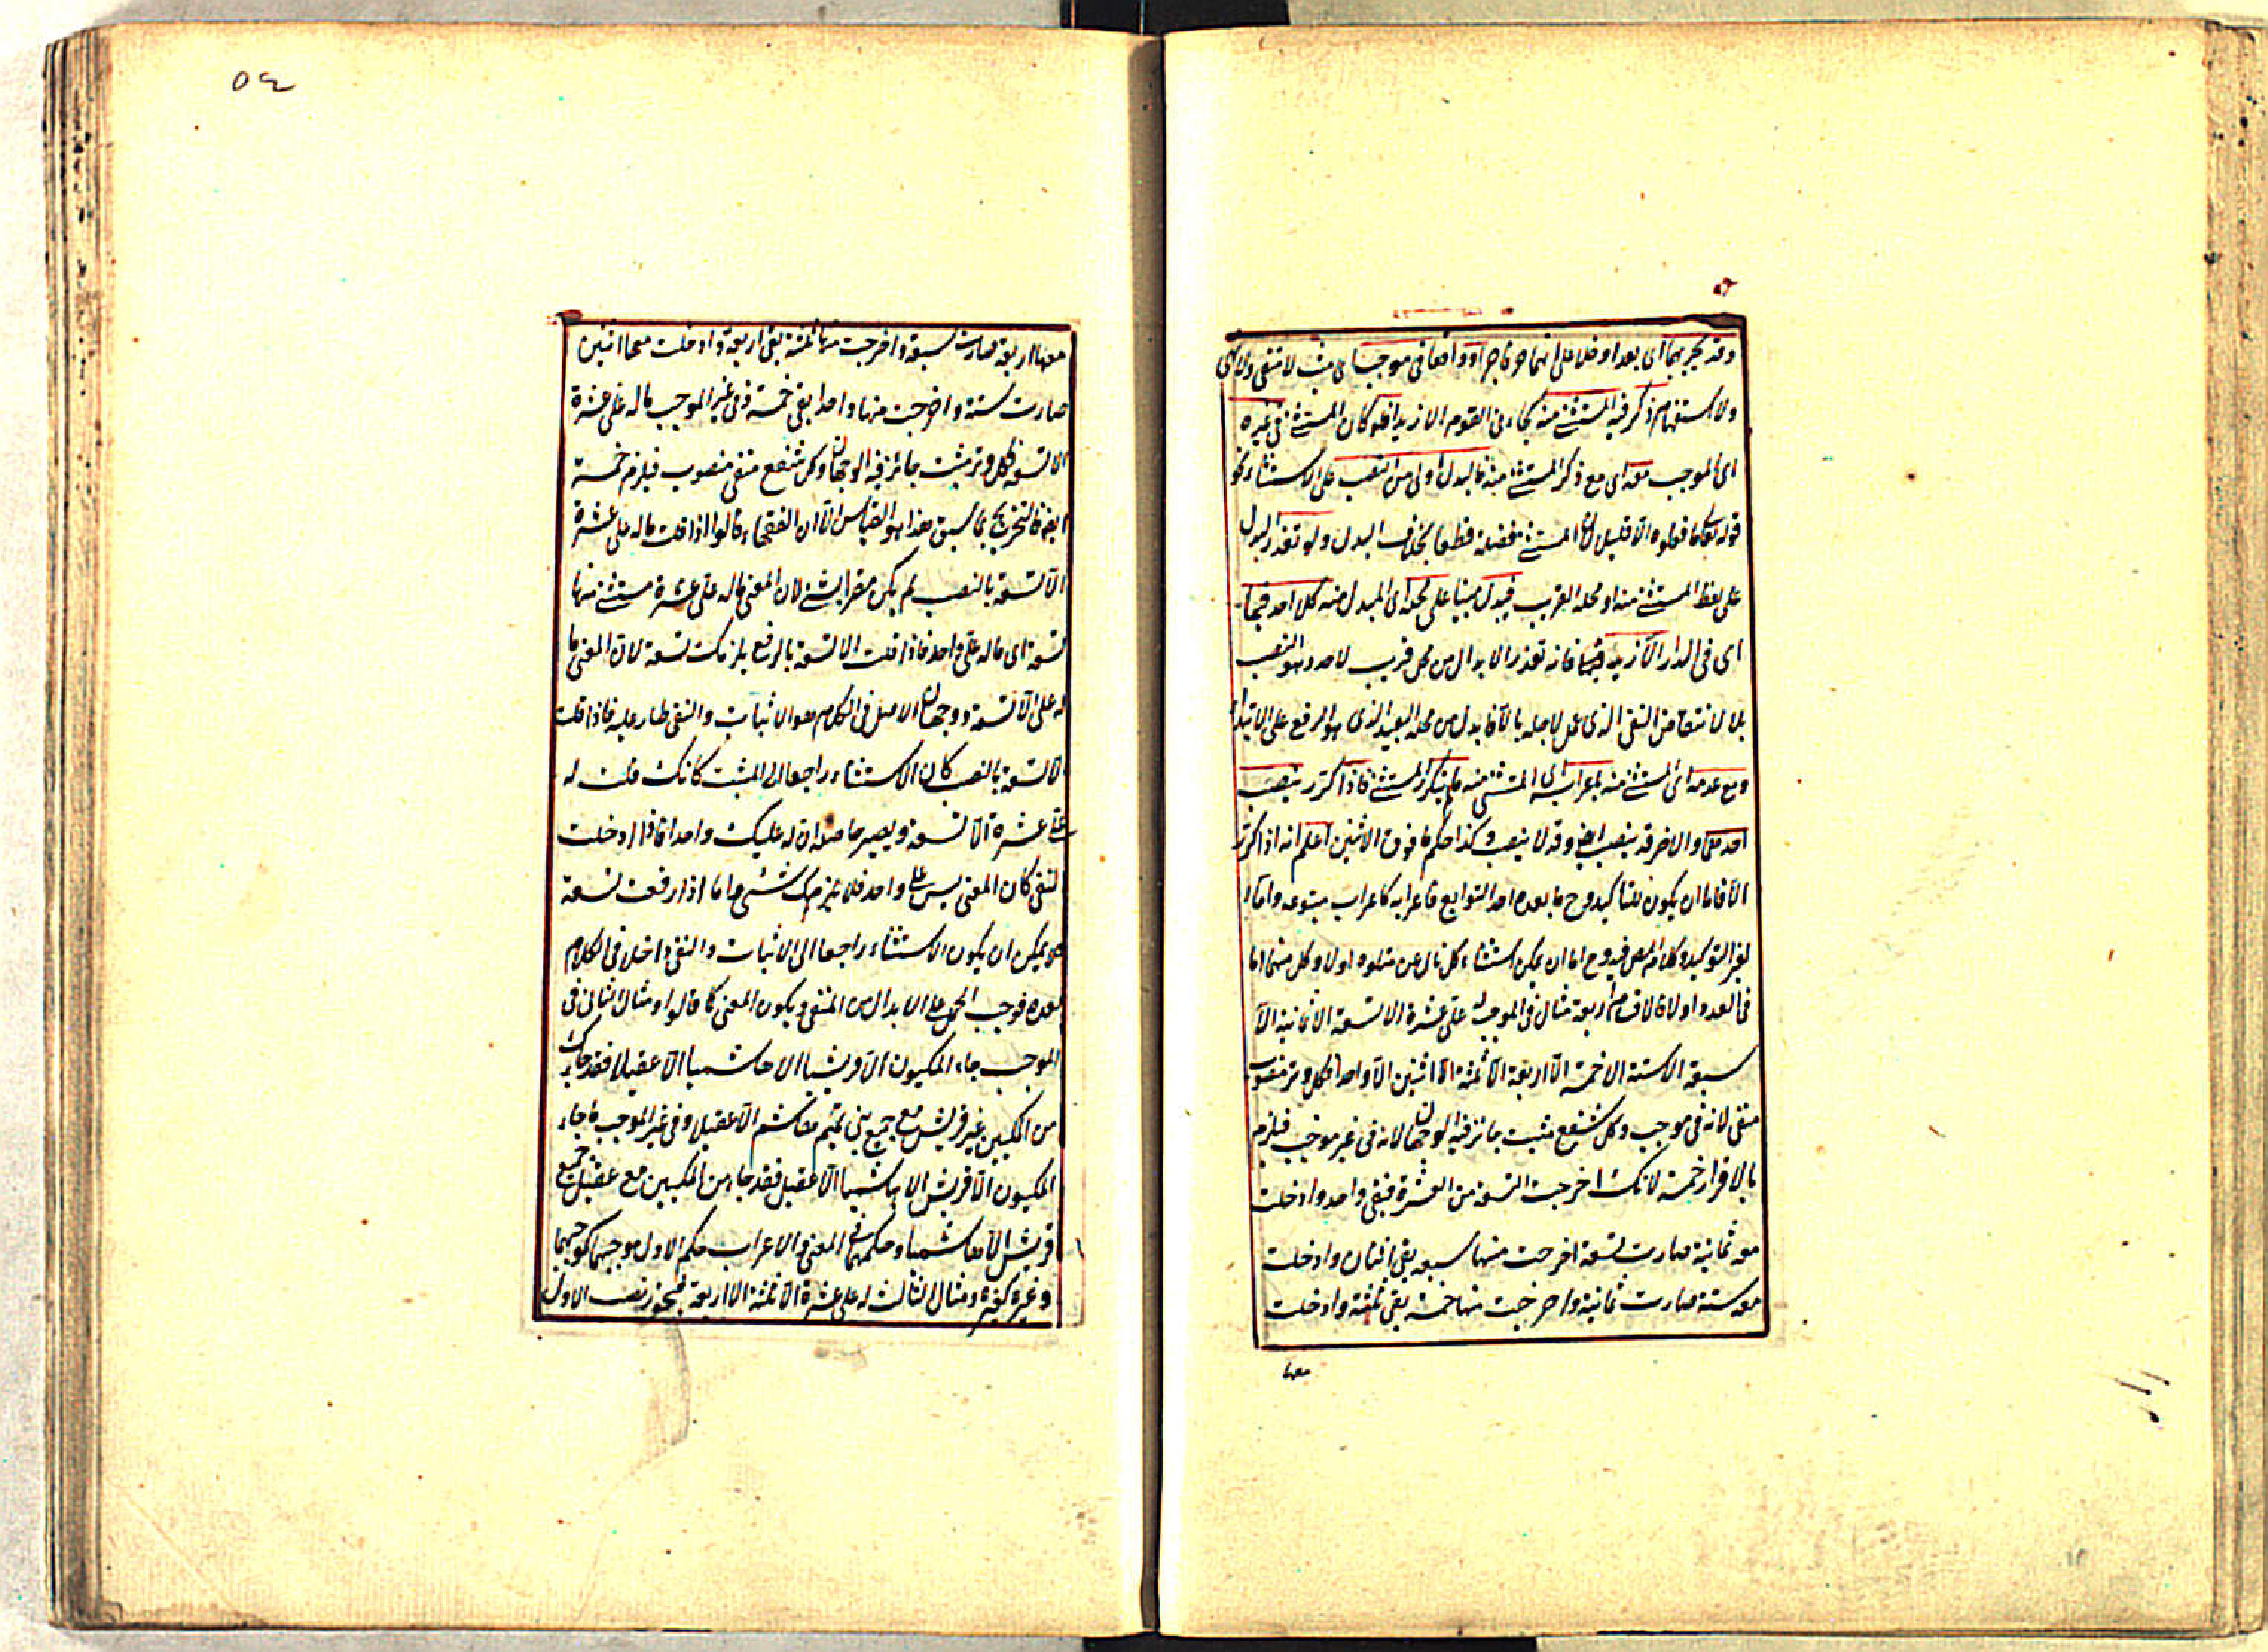 وقد يجر بهما اى بعدا وخلا على انهما حرفا جر او واقعا فى موجب اى مثبت لا منفى ولا نهى
ولا استفهام ذكر فيه المستثنى منه كجاءنى القوم الا زيدا فلو كان المستثنى فى غيره
اى الموجب معه اى مع ذكر المستثنى منه فالبدل اولى من النصب على الاستثناء نحو
قوله تعالى ما فعلوه الا قليل لان المستثنى فضلة قطعا بخلاف البدل ولو تعذر البدل
على لفظ المستثنى منه او محله القريب فيبدل مبنيا على محله اى المبدل منه كلا احد فيها
اى فى الدار الا زيد فانه تعذر الابدال من محل قريب لاحد وهو النصب
بلا لانتقاض النفى الذى عمل لاجله بالا فابدل من محله البعيد الذى هو الرفع على الابتداء
ومع عدمه اى المستثنى منه يعرب اى المستثنى منه ما لم يتكرر المستثنى فاذا كرر ينصب
احدهما والاخر قد ينصب ايضا وقد لا ينصب وكذا حكم ما فوق الاثنين اعلم انه اذا كرر
الا فاما ان يكون للتاكيد وح ما بعده احد التوابع فاعرابه كاعراب متبوعه واما
لغير التوكيد وكلام المص فيه وح اما ان يمكن استثناء كل تال من متلوه اولا وكل منهما اما
فى العدد اولا فالاقسام اربعة مثال فى الموجب له على عشرة الا تسعة الا ثمانية الا
سبعة الا ستة الا خمسة الا اربعة الا ثلثة الا اثنين الا واحدا فكل وتر منصوب
منفى لانه فى موجب وكل شفع مثبت جائز فيه الوجهان لانه فى غير موجب فيلزم
بالاقرار خمسة لانك اخرجت التسعة من العشرة فبقى واحد وادخلت
معه ثمانية صارت تسعة اخرجت منها سبعة بقى اثنان وادخلت
معه ستة صارت ثمانية واخرجت منها خمسة بقى ثلثة وادخلت
معها
٥٤
معها اربعة صارت سبعة واخرجت منها ثلثة بقى اربعة وادخلت معها اثنين
صارت ستة واخرجت منها واحدا بقى خمسة وفى غير الموجب ما له على عشرة
الا تسعة فكل وتر مثبت جائز فيه الوجهان وكل شفع منفى منصوب فيلزم خمسة
ايضا فالتخريج بما سبق هذا هو القياس الا ان الفقهاء قالوا اذا قلت ما له على عشرة
الا تسعة بالنصب لم يكن مقرا بشئ لان المعنى ما له على عشرة مستثنى منها
تسعة اى ما له على واحد فاذا قلت الا تسعة بالرفع يلزمك تسعة لان المعنى ما
له على الا تسعة ووجهه ان الاصل فى الكلام هو الاثبات والنفى طار عليه فاذا قلت
الا تسعة بالنصب كان الاستثناء راجعا الى المثبت كانك قلت له
على عشرة الا تسعة ويصير حاصله ان له عليك واحدا فاذا ادخلت
النفى كان المعنى ليس له على واحد فلا يلزمك شئ واما اذا رفعت تسعة
فلا يمكن ان يكون الاستثناء راجعا الى الاثبات والنفى داخلا فى الكلام
بعده فوجب الحمل على الابدال من المنفى ويكون المعنى كما قالوا ومثال الثانى فى
الموجب جاء المكيون الا قريشيا الا هاشميا الا عقيلا فقد جاءك
من المكيين غير قريش مع جميع بنى هاشم الا عقيلا وفى غير الموجب ما جاء
المكيون الا قريش الا هاشميا الا عقيل فقد جاء من المكيين مع عقيل جميع
قريش الا هاشميا وحكمهما فى المعنى والاعراب حكم الاول موجبهما كموجبهما
وغيره كغيره ومثال الثالث له على عشرة الا ثلثة الا اربعة فيجوز نصب الاول